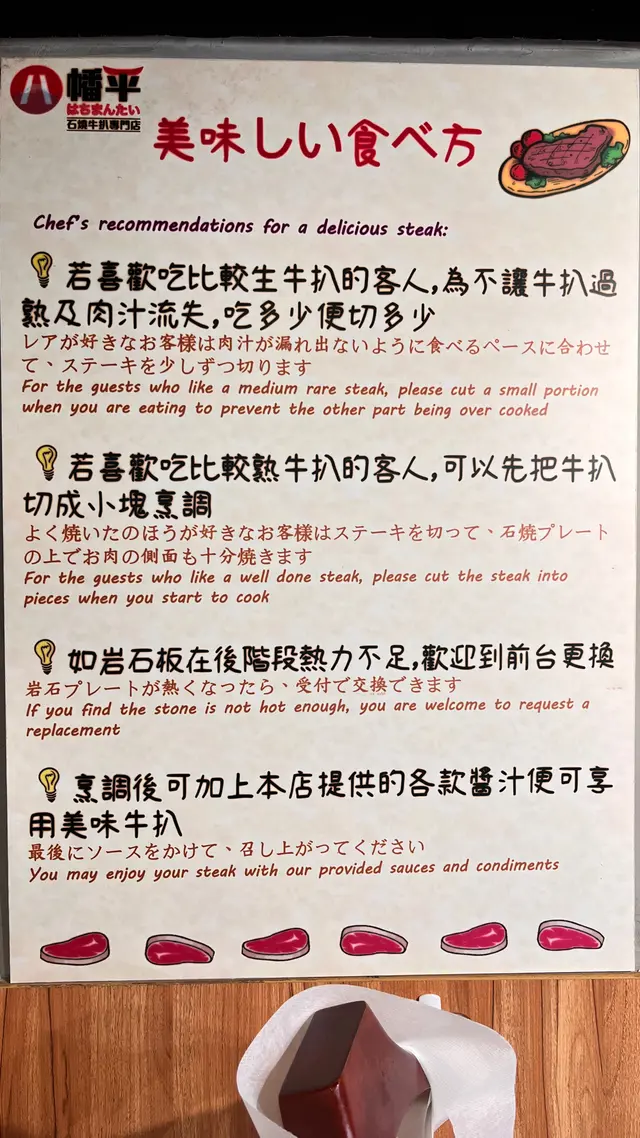 八幡平
はちまんたい
石燒牛扒專門店
美味しい食べ方
Chef's recommendations for a delicious steak:
若喜歡吃比較生牛扒的客人,為不讓牛扒過
熟及肉汁流失,吃多少便切多少
レアが好きなお客様は肉汁が漏れ出ないように食べるペースに合わせ
て、ステーキを少しずつ切ります
For the guests who like a medium rare steak, please cut a small portion
when you are eating to prevent the other part being over cooked
若喜歡吃比較熟牛扒的客人,可以先把牛扒
切成小塊烹調
よく焼いたのほうが好きなお客様はステーキを切って、石焼プレート
の上でお肉の側面も十分焼きます
For the guests who like a well done steak, please cut the steak into
pieces when you start to cook
如岩石板在後階段熱力不足,歡迎到前台更換
岩石プレートが熱くなったら、受付で交換できます
If you find the stone is not hot enough, you are welcome to request a
replacement
烹調後可加上本店提供的各款醬汁便可享
用美味牛扒
最後にソースをかけて、召し上がってください
You may enjoy your steak with our provided sauces and condiments